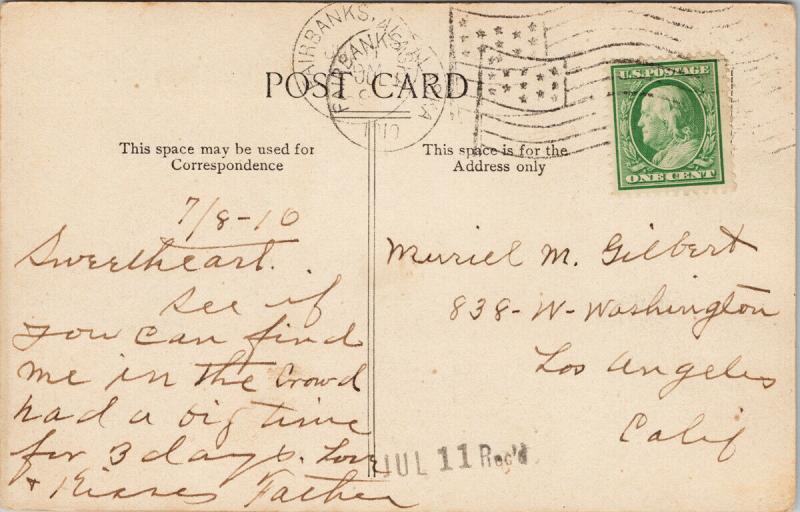 FAIRBANKS, ALASKA
1910
POST CARD
U.S. POSTAGE
ONE CENT
This space may be used for
Correspondence
This space is for the
Address only
7/8-10
Sweetheart.
See if
you can find
me in the Crowd
had a big time
for 3 days. Love
+ Kisses Father
Muriel M. Gilbert
838-W-Washington
Los Angeles
Calif
JUL 11 Rec'd